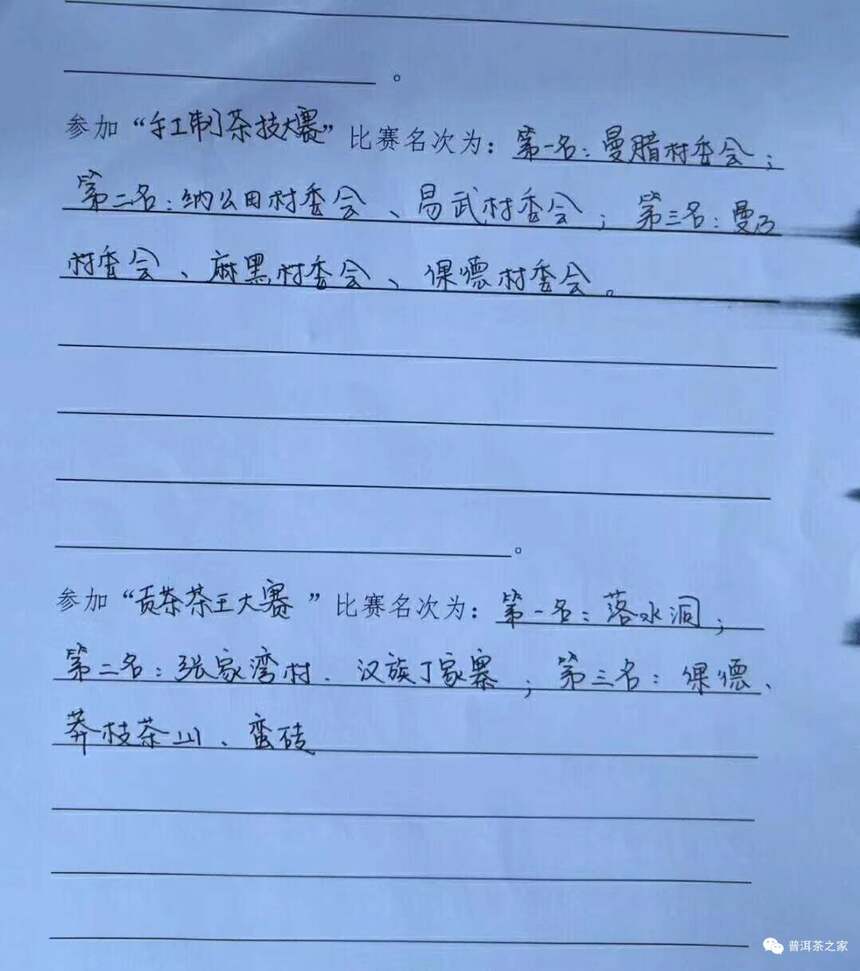 。
参加“手工制茶技大赛”比赛名次为：第一名：曼腊村委会；
第二名：纳么田村委会、易武村委会；第三名：曼乃
村委会、麻黑村委会、倮德村委会。
。
参加“贡茶茶王大赛”比赛名次为：第一名：落水洞；
第二名：张家湾村、汉族丁家寨；第三名：倮德、
莽枝茶山、蛮砖
普洱茶之家